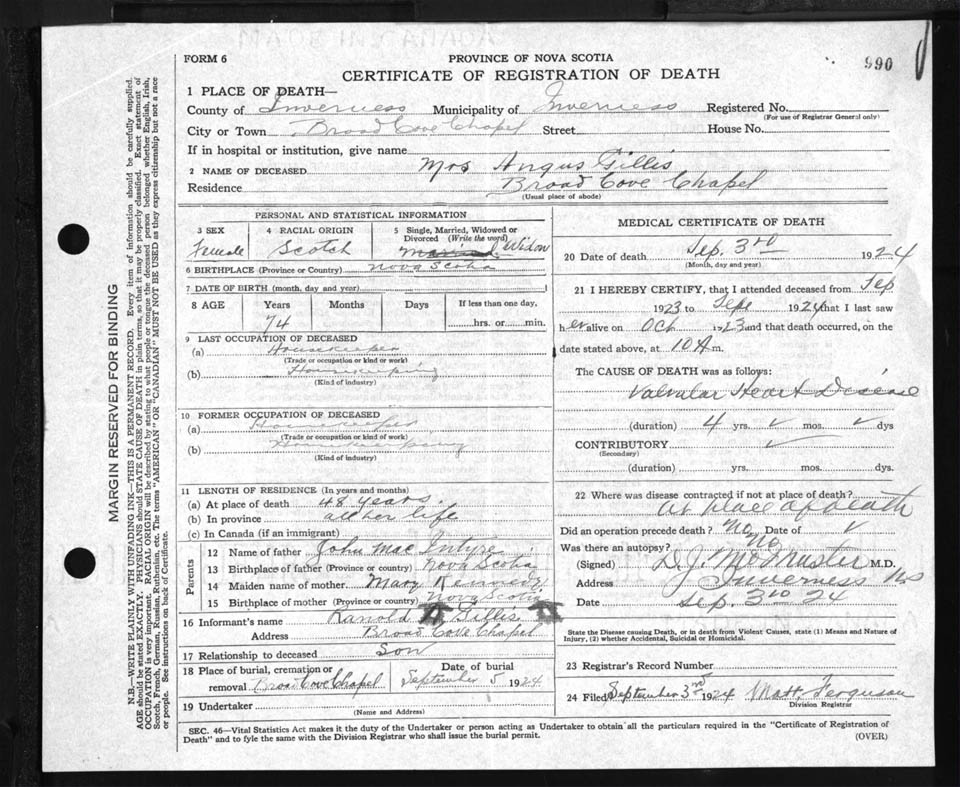 FORM 6
PROVINCE OF NOVA SCOTIA
990
CERTIFICATE OF REGISTRATION OF DEATH
1 PLACE OF DEATH—
County of Inverness Municipality of Inverness Registered No.
(For use of Registrar General only)
City or Town Broad Cove Chapel Street House No.
If in hospital or institution, give name
2 NAME OF DECEASED Mrs Angus Gillis
Residence Broad Cove Chapel
(Usual place of abode)
PERSONAL AND STATISTICAL INFORMATION
3 SEX 4 RACIAL ORIGIN 5 Single, Married, Widowed or Divorced (Write the word)
Female Scotch Married Widow
6 BIRTHPLACE (Province or Country) Nova Scotia
7 DATE OF BIRTH (month, day and year)
8 AGE Years Months Days If less than one day,
74 hrs. or min.
9 LAST OCCUPATION OF DECEASED
(a) Housekeeper
(Trade or occupation or kind or work)
(b) Housekeeping
(Kind of industry)
10 FORMER OCCUPATION OF DECEASED
(a) Housekeeper
(Trade or occupation or kind of work)
(b) Housekeeping
(Kind of industry)
11 LENGTH OF RESIDENCE (In years and months)
(a) At place of death 48 years.
(b) In province all her life
(c) In Canada (if an immigrant)
Parents
12 Name of father John Mac Intyre
13 Birthplace of father (Province or country) Nova Scotia
14 Maiden name of mother Mary Kennedy
15 Birthplace of mother (Province or country) Nova Scotia
16 Informant's name Ranold Gillis
Address Broad Cove Chapel
17 Relationship to deceased Son
18 Place of burial, cremation or removal Broad Cove Chapel
Date of burial September 5 1924
19 Undertaker
(Name and Address)
MEDICAL CERTIFICATE OF DEATH
20 Date of death Sep. 3rd 1924
(Month, day and year)
21 I HEREBY CERTIFY, that I attended deceased from Sep
1923 to Sept 1924 that I last saw
her alive on Oct 1923 and that death occurred, on the
date stated above, at 10 A m.
The CAUSE OF DEATH was as follows:
Valvular Heart Disease
(duration) 4 yrs. ✓ mos. ✓ dys
CONTRIBUTORY ✓
(Secondary)
(duration) yrs. mos. dys.
22 Where was disease contracted if not at place of death?
at place of death
Did an operation precede death? No Date of ✓
Was there an autopsy? No
(Signed) D.J. McMaster M.D.
Address Inverness NS
Date Sep. 3rd 24
State the Disease causing Death, or in death from Violent Causes, state (1) Means and Nature of
Injury, (2) whether Accidental, Suicidal or Homicidal.
23 Registrar's Record Number
24 Filed September 3rd 1924 Matt. Ferguson
Division Registrar
SEC. 46—Vital Statistics Act makes it the duty of the Undertaker or person acting as Undertaker to obtain all the particulars required in the "Certificate of Registration of
Death" and to fyle the same with the Division Registrar who shall issue the burial permit.
(OVER)
MARGIN RESERVED FOR BINDING
N.B.—WRITE PLAINLY WITH UNFADING INK—THIS IS A PERMANENT RECORD. Every item of information should be carefully supplied.
AGE should be stated EXACTLY. PHYSICIANS should STATE CAUSE OF DEATH in plain terms, so that it may be properly classified. Exact statement of
OCCUPATION is very important. RACIAL ORIGIN will be described by stating to what people or tongue the deceased person belonged whether English, Irish,
Scotch, French, German, Russian, Ruthenian, etc. The terms "AMERICAN" OR "CANADIAN" MUST NOT BE USED as they express citizenship but not a race
or people. See instructions on back of Certificate.